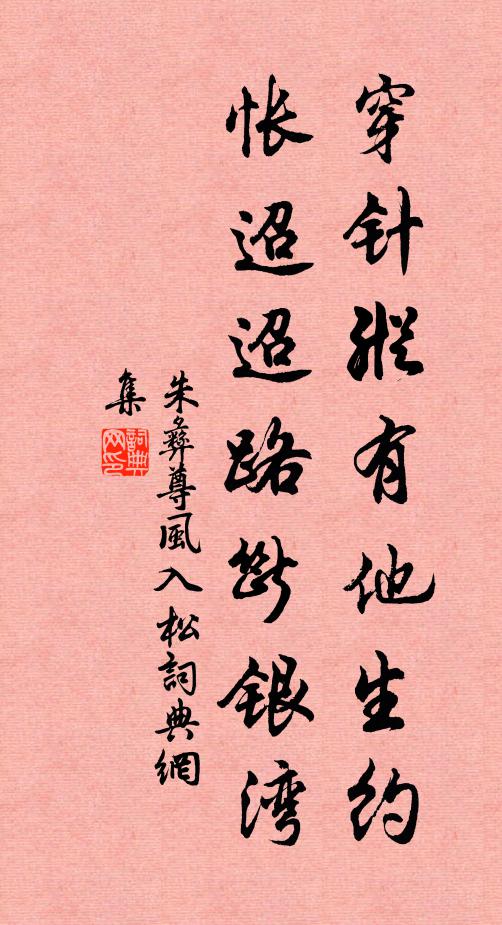 穿针縱有他生约
怅迢迢路断银湾
朱彝尊風入松詞典網
集
詞典
网印